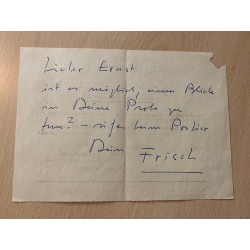 Lieber Ernst
ist es möglich, einen Blick
in Deine Probe zu
tun? – beim Portier
Dein
Frisch